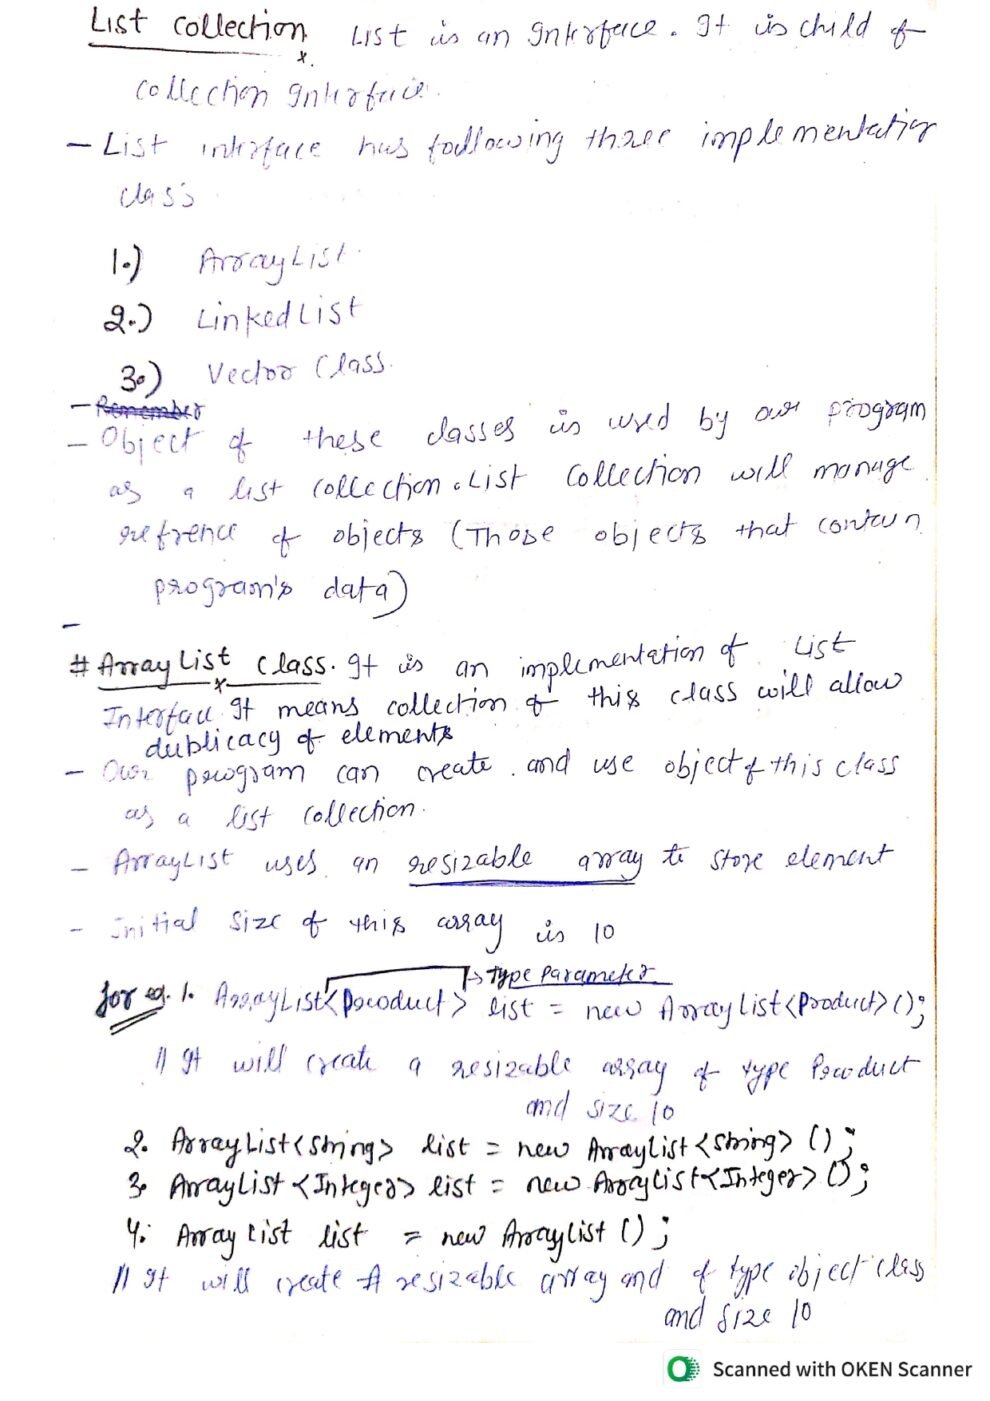 List collection. List is an Interface. It is child of
collection Interface.
- List interface has following three implementation
class
1.) ArrayList.
2.) Linked List
3.) Vector Class.
- Remember
- Object of these classes is used by our program
as a list collection. List Collection will manage
refrence of objects (Those objects that contain
program's data)
-
# Array List class. It is an implementation of List
Interface It means collection of this class will allow
dublicacy of elements
- Our program can create and use object of this class
as a list collection.
- ArrayList uses an resizable array to store element
- Initial size of this array is 10
→ Type Parameter
for eg. 1. ArrayList<Product> list = new ArrayList<Product>();
// It will create a resizable array of type Product
and size 10
2. ArrayList<String> list = new ArrayList<String>();
3. ArrayList<Integer> list = new ArrayList<Integer>();
4. Array List list = new ArrayList();
// It will create A resizable array and of type object class
and size 10
Scanned with OKEN Scanner